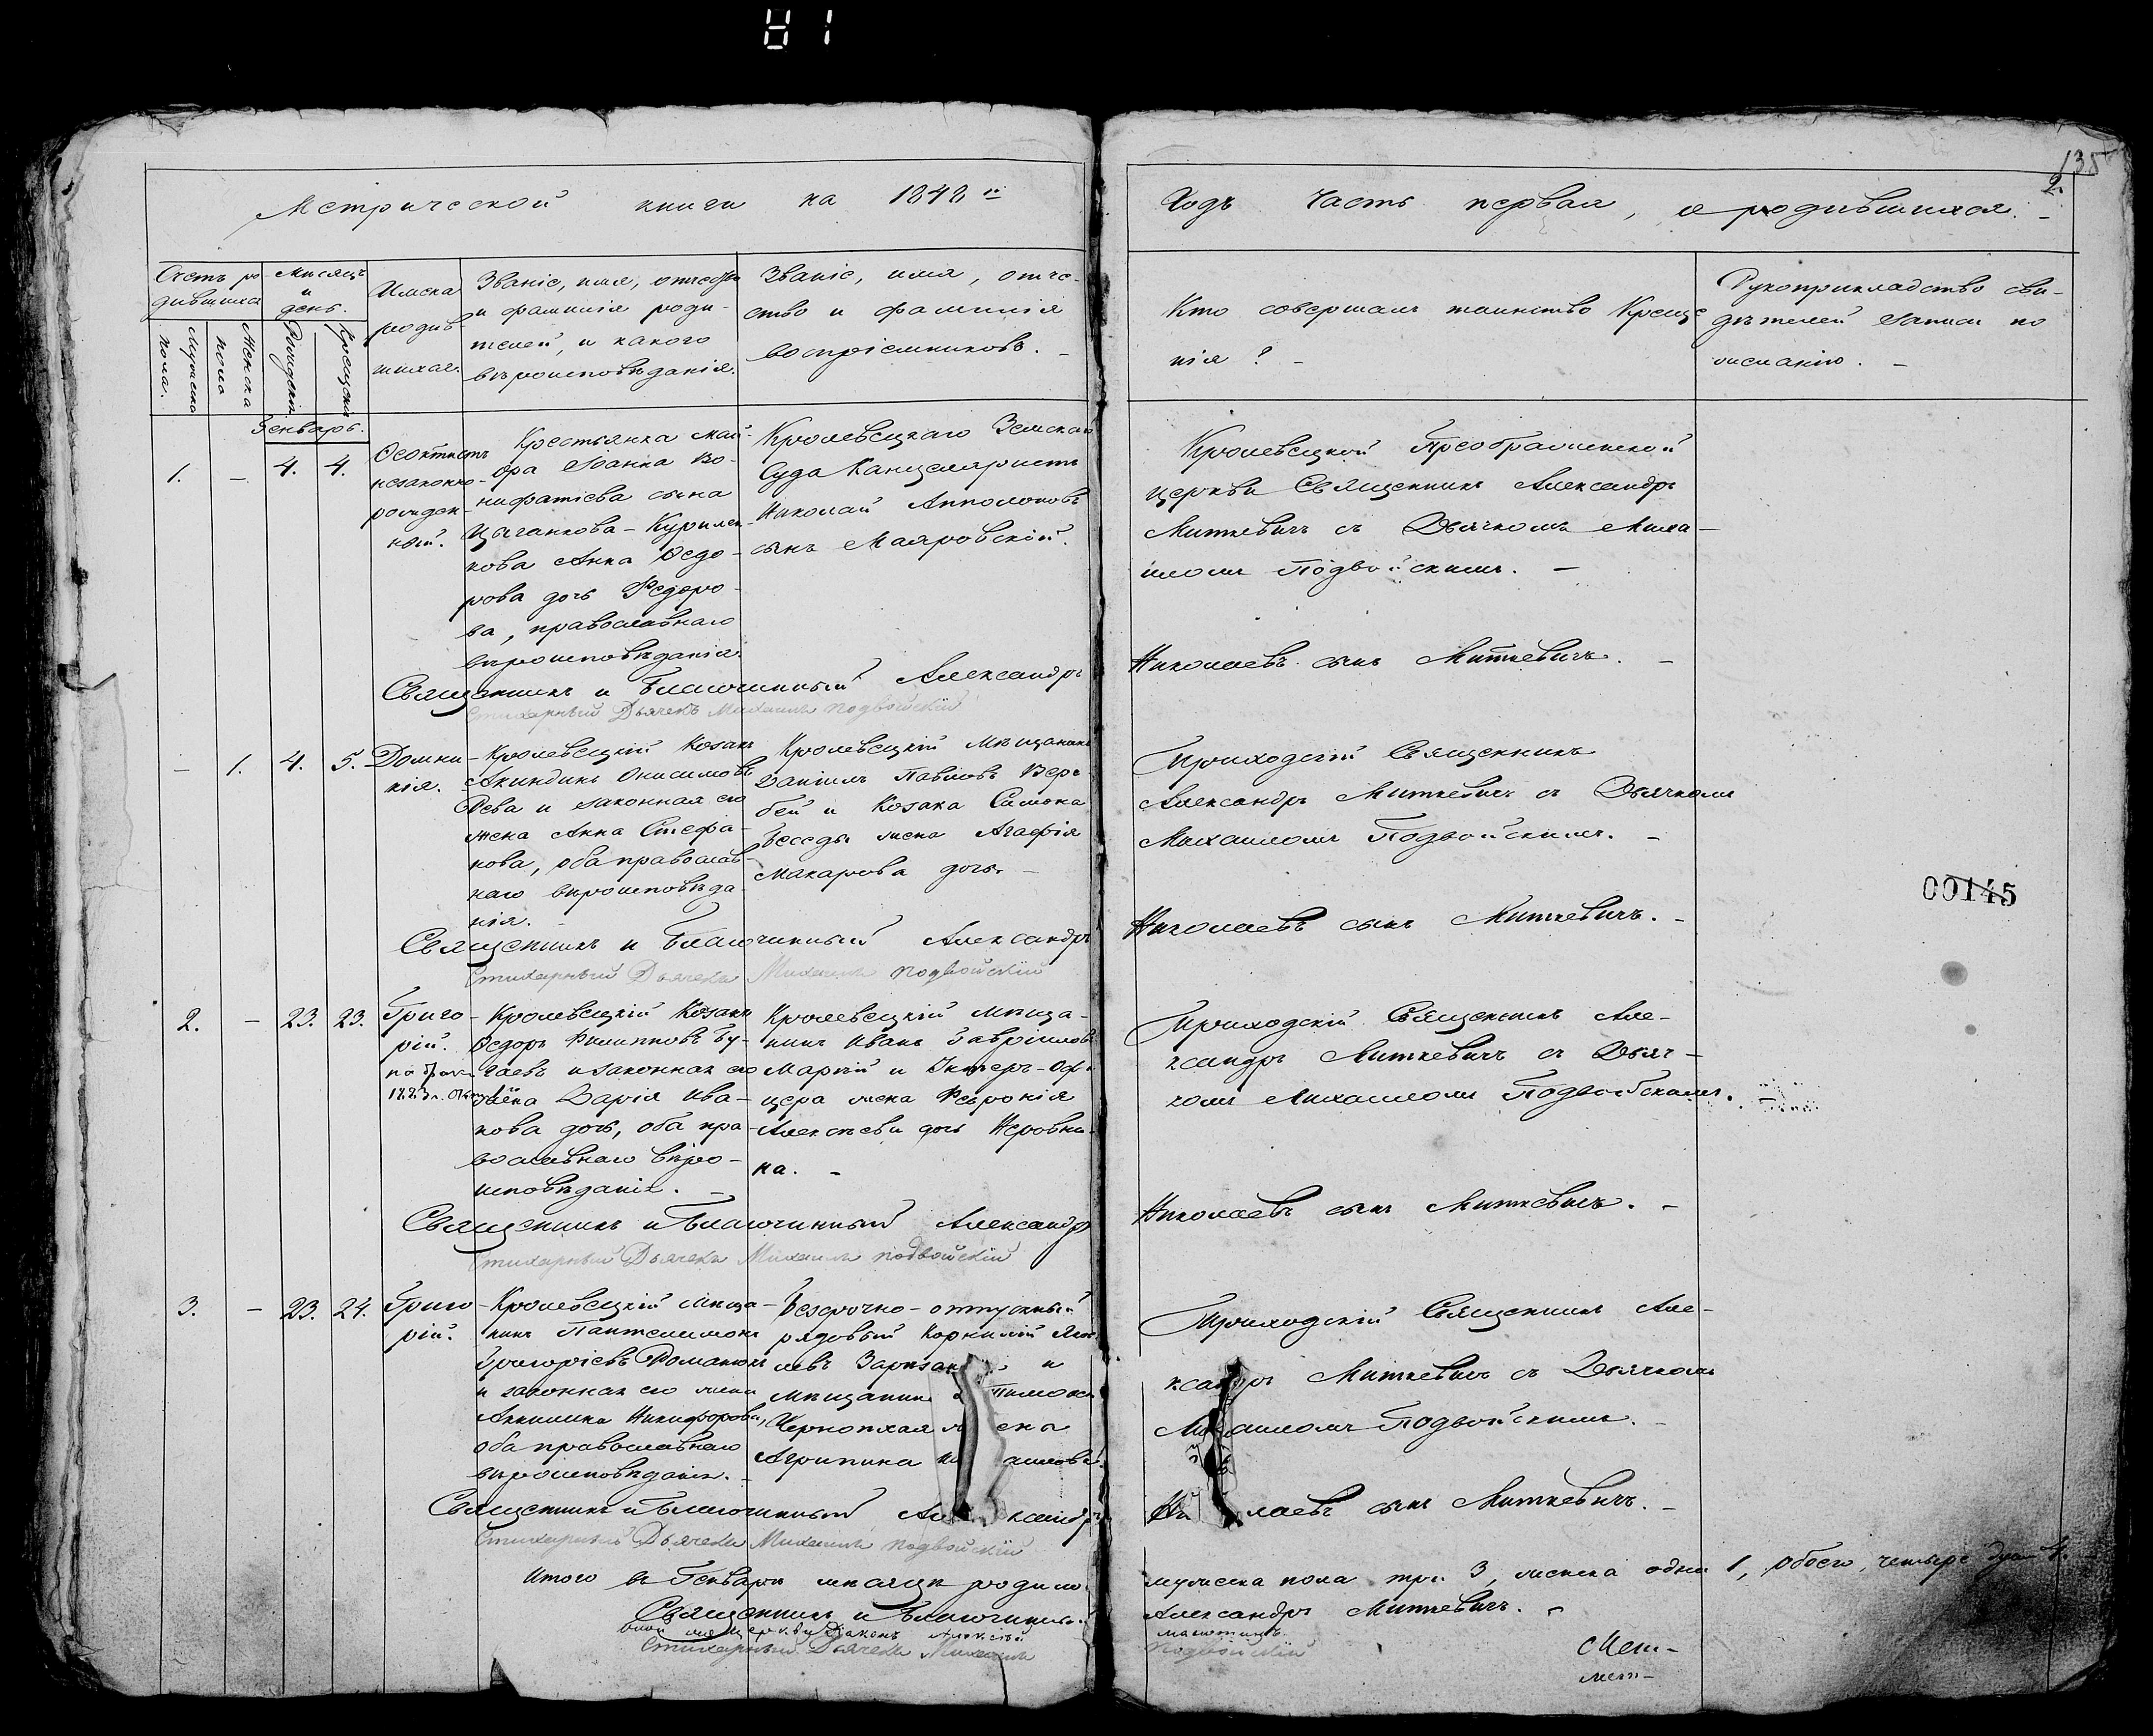 81
135
2.
Метрической книги на 1848й
Годъ Часть первая, о родившихся. –
Счетъ ро-
дившихся
Мужеска
пола.
Женска
пола
Месяцъ
и
день.
Рожденія
Крещенія
Имена
родив-
шихся.
Званіе, имя, отчество
и фамилія роди-
телей, и какого
вѣроисповѣданія.
Званіе, имя, отче-
ство и фамилія
воспріемниковъ. –
Кто совершалъ таинство Креще
нія? –
Рукоприкладство сви-
дѣтелей записи по
желанію. –
Генварь.
1. – 4. 4.
Феоктистъ
незаконно-
рожден-
ный.
Крестьянка май-
ора Іоанна Во-
нифатіева сына
Цыганкова – Курилен-
кова Анна Федо-
рова дочь Федоро-
ва, православнаго
вѣроисповѣданія.
Кролевецкаго Земскаго
Суда Канцеляристъ
Николай Апполоновъ
сынъ Маяровскій.
Кролевецкой Преображенской
церкви Священникъ Александръ
Миткевичъ съ Дьячкомъ Миха-
иломъ Подвойскимъ. –
Священникъ и Благочинный Александръ
Николаевъ сынъ Миткевичъ. –
Стихарный Дьячекъ Михаилъ Подвойскій
– 1. 4. 5.
Домни-
кія.
Кролевецкій Козакъ
Акиндинъ Онисимовъ
Рева и законная его
жена Анна Стефа-
нова, оба православ-
наго вѣроисповѣда-
нія. –
Кролевецкій Мѣщанинъ
Даніилъ Павловъ Вер-
бей и Козака Симона
Беседы жена Агафія
Макарова дочь. –
Приходскій Священникъ
Александръ Миткевичъ съ Дьячкомъ
Михаиломъ Подвойскимъ. –
Священникъ и Благочинный Александръ
Николаевъ сынъ Миткевичъ. –
Стихарный Дьячекъ Михаилъ Подвойскій
00145
2. – 23. 23.
Григо-
рій.
Кролевецкій Козакъ
Федоръ Филипповъ Бу-
гаевъ и законная его
жена Дарія Ива-
нова дочь, оба пра-
вославнаго вѣро-
исповѣданія. –
Кролевецкій мѣща-
нинъ Иванъ Гавріиловъ
Маркій и Унтеръ-Офи
цера жена Февронія
Алексѣева дочь Неровни-
на. –
Приходскій Священникъ Але-
ксандръ Миткевичъ съ Дьяч-
комъ Михаиломъ Подвойскимъ.
Священникъ и Благочинный Александръ
Николаевъ сынъ Миткевичъ. –
Стихарный Дьячекъ Михаилъ Подвойскій
3. – 23. 24.
Григо
рій.
Кролевецкій мѣща-
нинъ Пантелимонъ
Григоріевъ Романюкъ
и законная его жена
Акилина Никифорова,
оба православнаго
вѣроисповѣданія. –
Безсрочно-отпускный
рядовый Корнилій Яков
левъ и
мѣщанина
жена
Агрипина
Приходскій Священникъ Але-
ксандръ Миткевичъ съ Дьячкомъ
Михаиломъ Подвойскимъ. –
Священникъ и Благочинный Александръ
Николаевъ сынъ Миткевичъ. –
Стихарный Дьячекъ Михаилъ Подвойскій
Итого въ Генварѣ мѣсяцѣ родило
мужеска пола три 3, женска одна 1, обоего, четыре душ 4.
Священникъ и Благочинный
Александръ Миткевичъ. –
Діаконъ Алексѣй
Стихарный Дьячекъ Михаилъ
Подвойскій